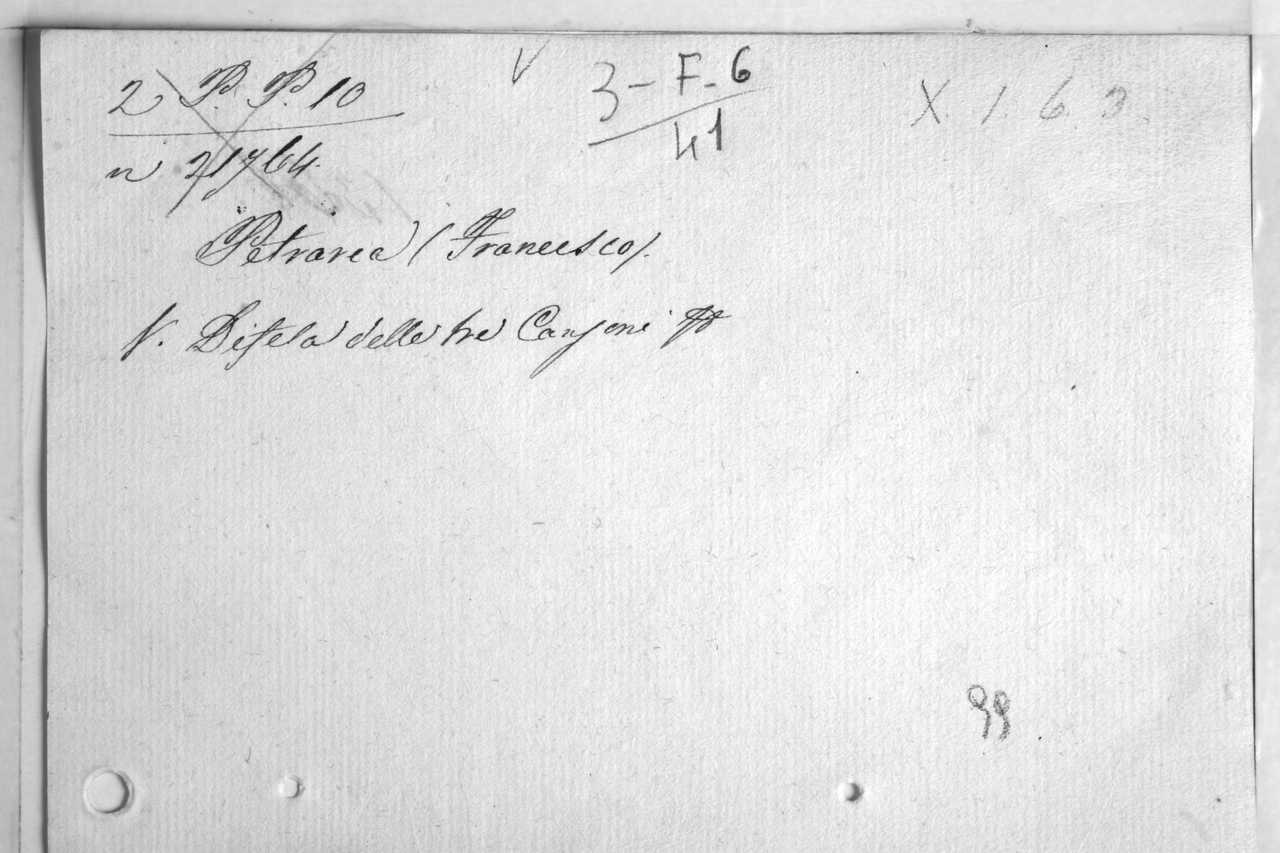 2 P. P. 10
n 21764.
V
3-F-6
41
X. 1. 6. 3.
Petrarca (Francesco).
V. Difesa delle tre Canzoni
99